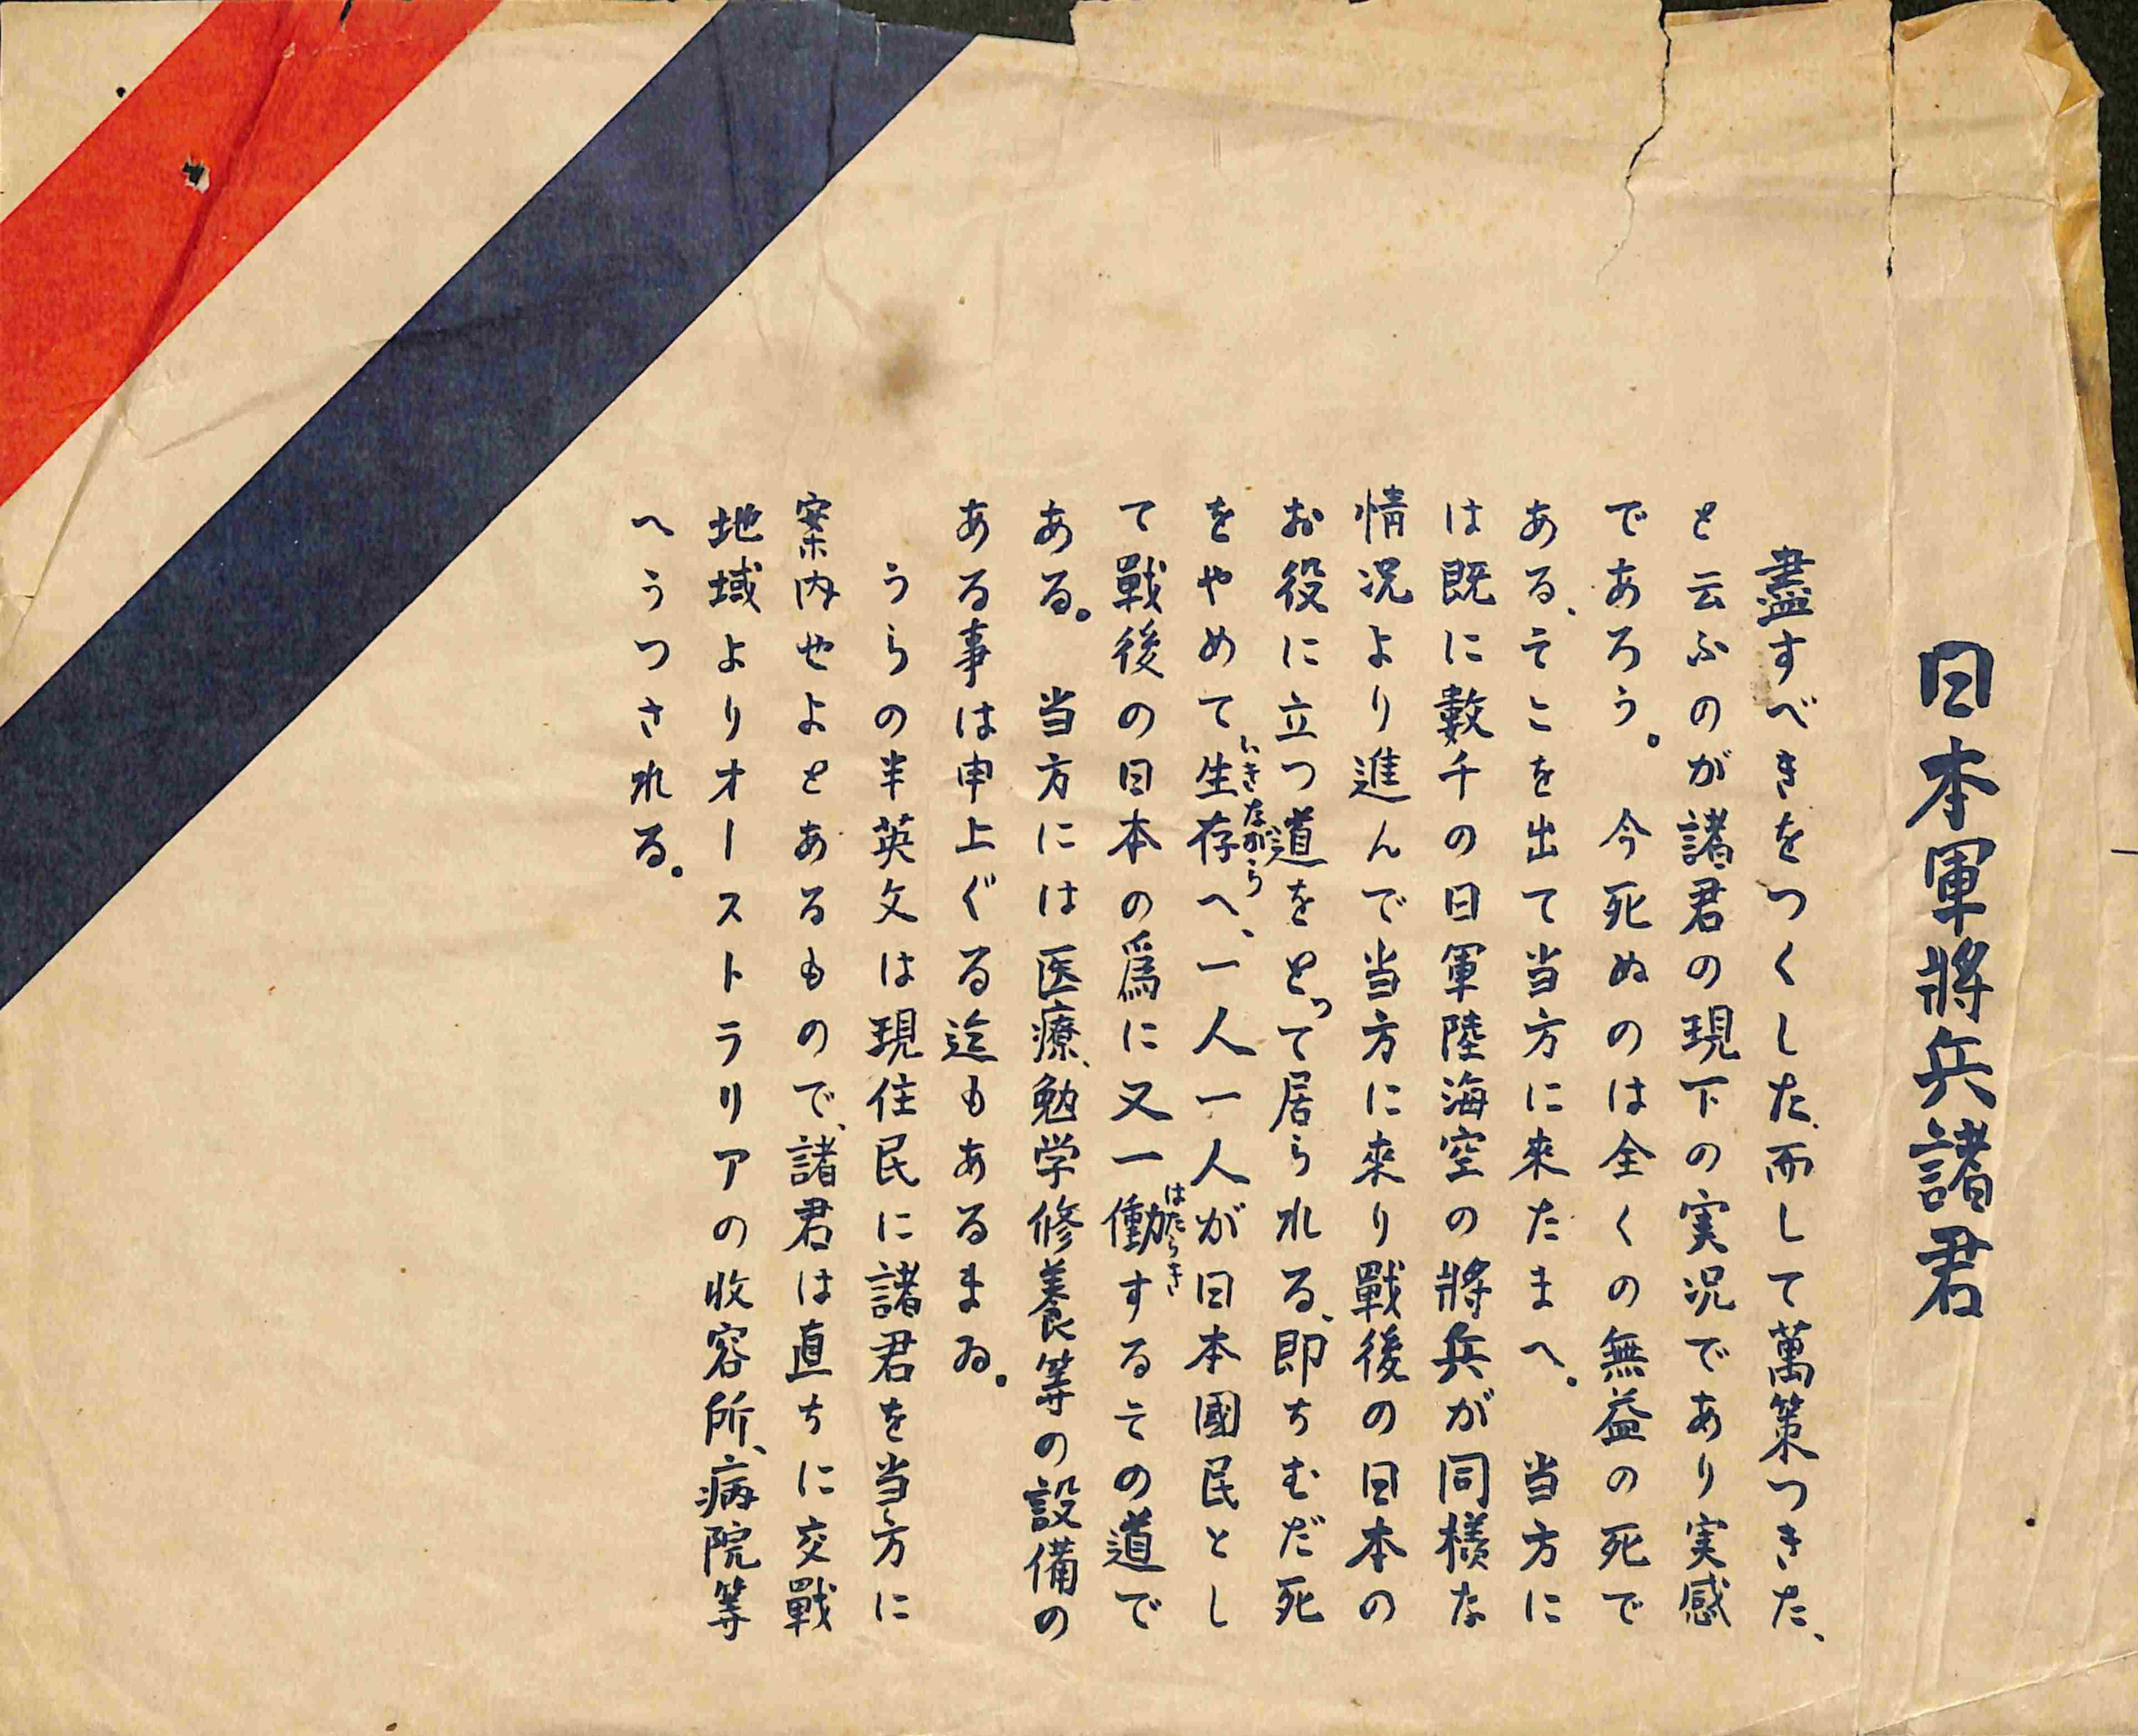 日本軍將兵諸君
盡すべきをつくした、而して萬策つきた、
と云ふのが諸君の現下の実況であり実感
であろう。今死ぬのは全くの無益の死で
ある、そこを出て当方に來たまへ。当方に
は既に數千の日軍陸海空の將兵が同樣な
情況より進んで当方に來り戰後の日本の
お役に立つ道をとって居られる、即ちむだ死
をやめて生存へ、一人一人が日本國民とし
いきながら
て戰後の日本の爲に又一働するその道で
はたらき
ある。当方には医療、勉学修養等の設備の
ある事は申上ぐる迄もあるまゐ。
うらの半英文は現住民に諸君を当方に
案内せよとあるもので、諸君は直ちに交戰
地域よりオーストラリアの收容所、病院等
へうつされる。